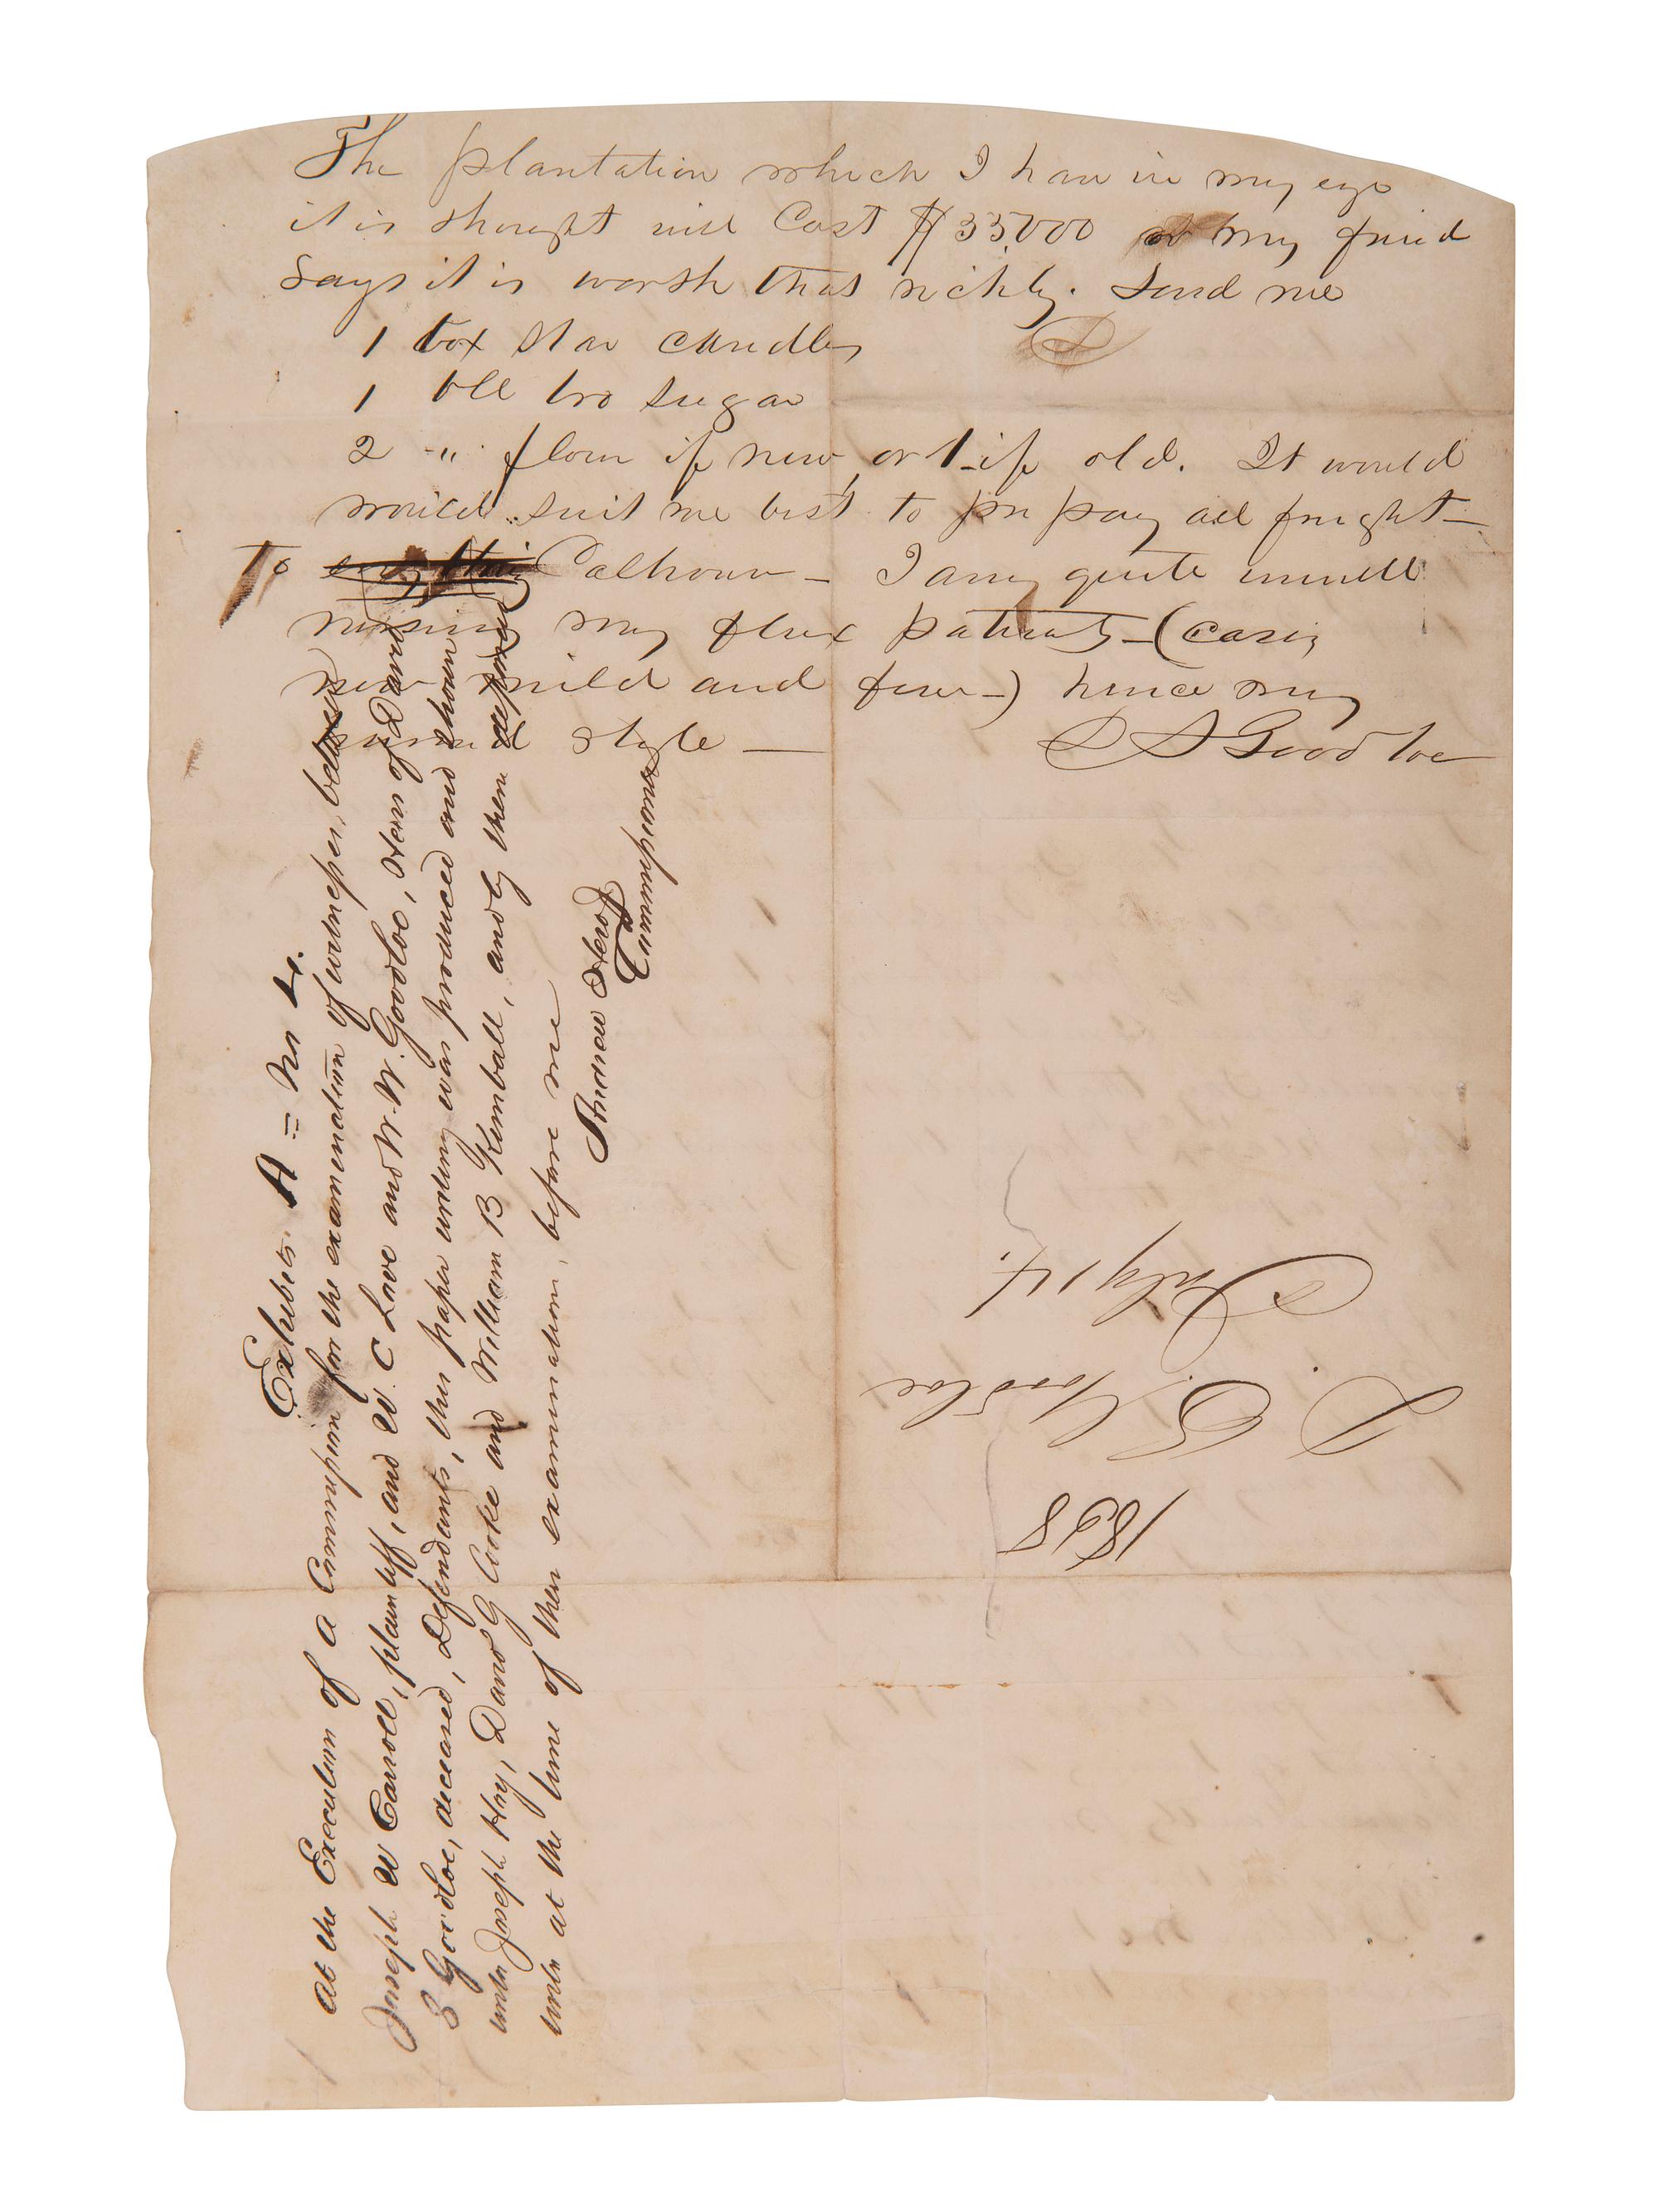 The plantation which I have in my eye
it is thought will Cost $33,000 my friend
says it is worth that richly. Send me
1 box Star candles
1 bll bro sugar
2 " flour if new, or 1 if old. It would
would suit me best to pre pay all freight—
To any thing Calhoun— I am quite unwell
nursing my flux patients—(cases
now mild and few—) hence my
style — D S Goodloe
Exhibit A = No 4.
At the Execution of a Commission for the examination of witnesses, between
Joseph W Carroll, plaintiff, and W. C Love and W. W. Goodloe, Heirs of David
S Goodloe, deceased, Defendants, this paper writing was produced and shown
unto Joseph Hoy, David G Cooke and William B Kimball, and by them deposed
unto at the time of their examination, before me
Commissioner
1858
D. S. Goodloe
July 14.